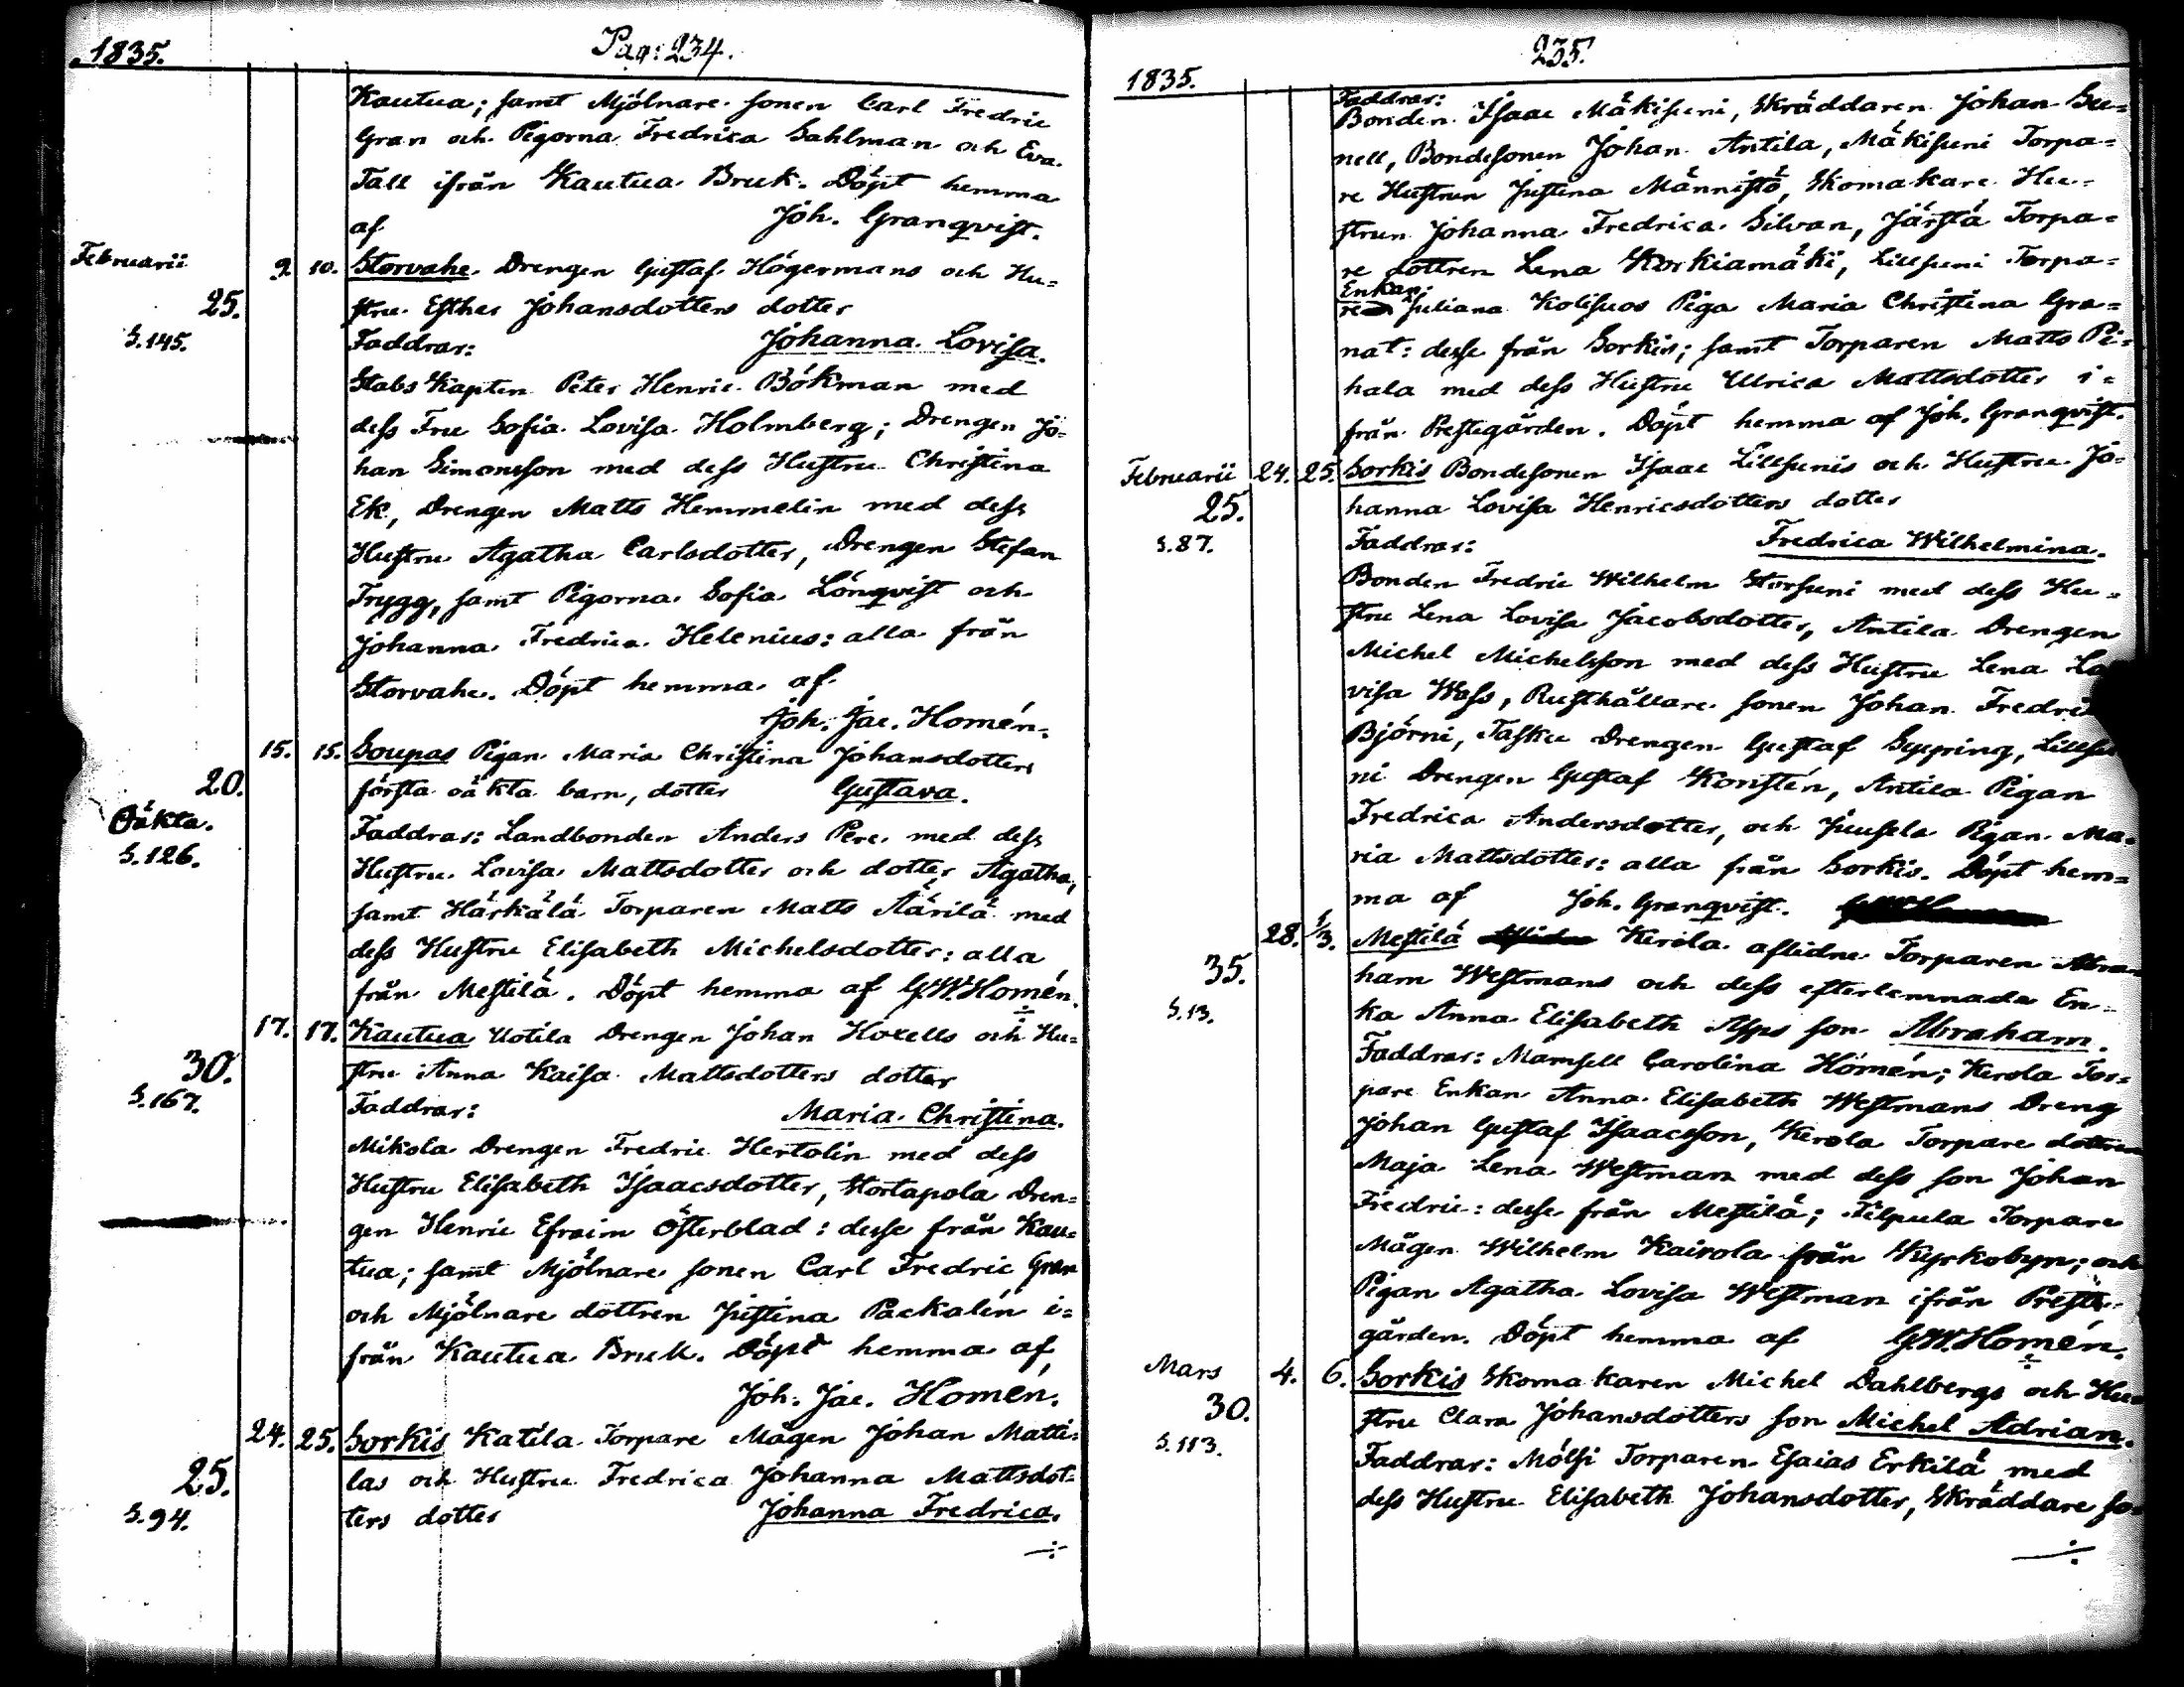 1835.
Pag: 234.
Kautua; samt Mjölnare sonen Carl Fredric
Gran och Pigorna Fredrica Sahlman och Eva
Tall ifrån Kautua Bruk. Döpt hemma
af Joh. Granqvist.
Februarii 9. 10. Storvahe Drengen Gustaf Högermans och Hu=
25. stru Esther Johansdotters dotter
S.145. Faddrar: Johanna Lovisa.
Stabs Kapten Peter Henric Bökman med
dess Fru Sofia Lovisa Holmberg; Drengen Jo=
han Simonsson med dess Hustru Christina
Ek, Drengen Matts Hemmelin med dess
Hustru Agatha Carlsdotter, Drengen Stefan
Trygg, samt Pigorna Sofia Lönqvist och
Johanna Fredrica Helenius: alla från
Storvahe. Döpt hemma af
Joh. Jac. Homén.
15. 15. Soupas Pigan Maria Christina Johansdotters
20. första oäkta barn, dotter Gustava.
Oäkta. Faddrar: Landbonden Anders Pere med dess
S.126. Hustru Lovisa Mattsdotter och dotter Agatha,
samt Härkälä Torparen Matts Äärilä med
dess Hustru Elisabeth Michelsdotter: alla
från Mestilä. Döpt hemma af G.W.Homén.
17. 17. Kautua Uotila Drengen Johan Hoxells och Hu=
30. stru Anna Kaisa Mattsdotters dotter
S.167. Faddrar: Maria Christina.
Mikola Drengen Fredric Hertolin med dess
Hustru Elisabeth Isaacsdotter, Stortapola Dren=
gen Henric Efraim Österblad: desse från Kau=
tua; samt Mjölnare sonen Carl Fredric Gran
och Mjölnare dottren Justina Packalén i=
från Kautua Bruk. Döpt hemma af
Joh. Jac. Homén.
24. 25. Sorkis Katila Torpare Mågen Johan Matti=
25. las och Hustru Fredrica Johanna Mattsdot=
S.94. ters dotter Johanna Fredrica.
÷
235.
1835.
Faddrar:
Bonden Isaac Mäkisuni, Skräddaren Johan Su=
nell, Bondesonen Johan Antila, Mäkisuni Torpa=
re Hustrun Justina Männistö, Skomakare Hu=
strun Johanna Fredrica Silvan, Järstä Torpa=
re dottren Lena Korkiamäki, Lillsuni Torpa=
Enkan:
re Juliana Kolisuos Piga Maria Christina Gra=
nat: desse från Sorkis; samt Torparen Matts Pi=
hala med dess Hustru Ulrica Mattsdotter i=
från Prestegården. Döpt hemma af Joh. Granqvist.
Februarii 24. 25. Sorkis Bondesonen Isaac Lillsunis och Hustru Jo=
25. hanna Lovisa Henricsdotters dotter
S.87. Faddrar: Fredrica Wilhelmina.
Bonden Fredric Wilhelm Storsuni med dess Hu=
stru Lena Lovisa Jacobsdotter, Antila Drengen
Michel Michelsson med dess Hustru Lena Lo
visa Wass, Rusthållare sonen Johan Fredric
Björni, Tasku Drengen Gustaf Sypring, Lillsu
ni Drengen Gustaf Konstén, Antila Pigan
Fredrica Andersdotter, och Juusela Pigan Ma=
ria Mattsdotter: alla från Sorkis. Döpt hem=
ma af Joh. Granqvist.
28. 1/3. Mestilä Kerola aflidne Torparen Abra
35. ham Westmans och dess efterlemnade En=
S.13. ka Anna Elisabeth Asps son Abraham.
Faddrar: Mamsell Carolina Homén; Kerola Tor=
pare Enkan Anna Elisabeth Westmans Dreng
Johan Gustaf Isaacsson, Kerola Torpare dottren
Maja Lena Westman med dess son Johan
Fredric: desse från Mestilä; Filpula Torpare
Mågen Wilhelm Kairola från Kyrkobyn; och
Pigan Agatha Lovisa Westman ifrån Preste=
gården. Döpt hemma af G.W.Homén.
Mars 4. 6. Sorkis Skomakaren Michel Dahlbergs och Hu=
30. stru Clara Johansdotters son Michel Adrian.
S.113. Faddrar: Mölsi Torparen Esaias Erkilä med
dess Hustru Elisabeth Johansdotter, Skräddare so=
÷